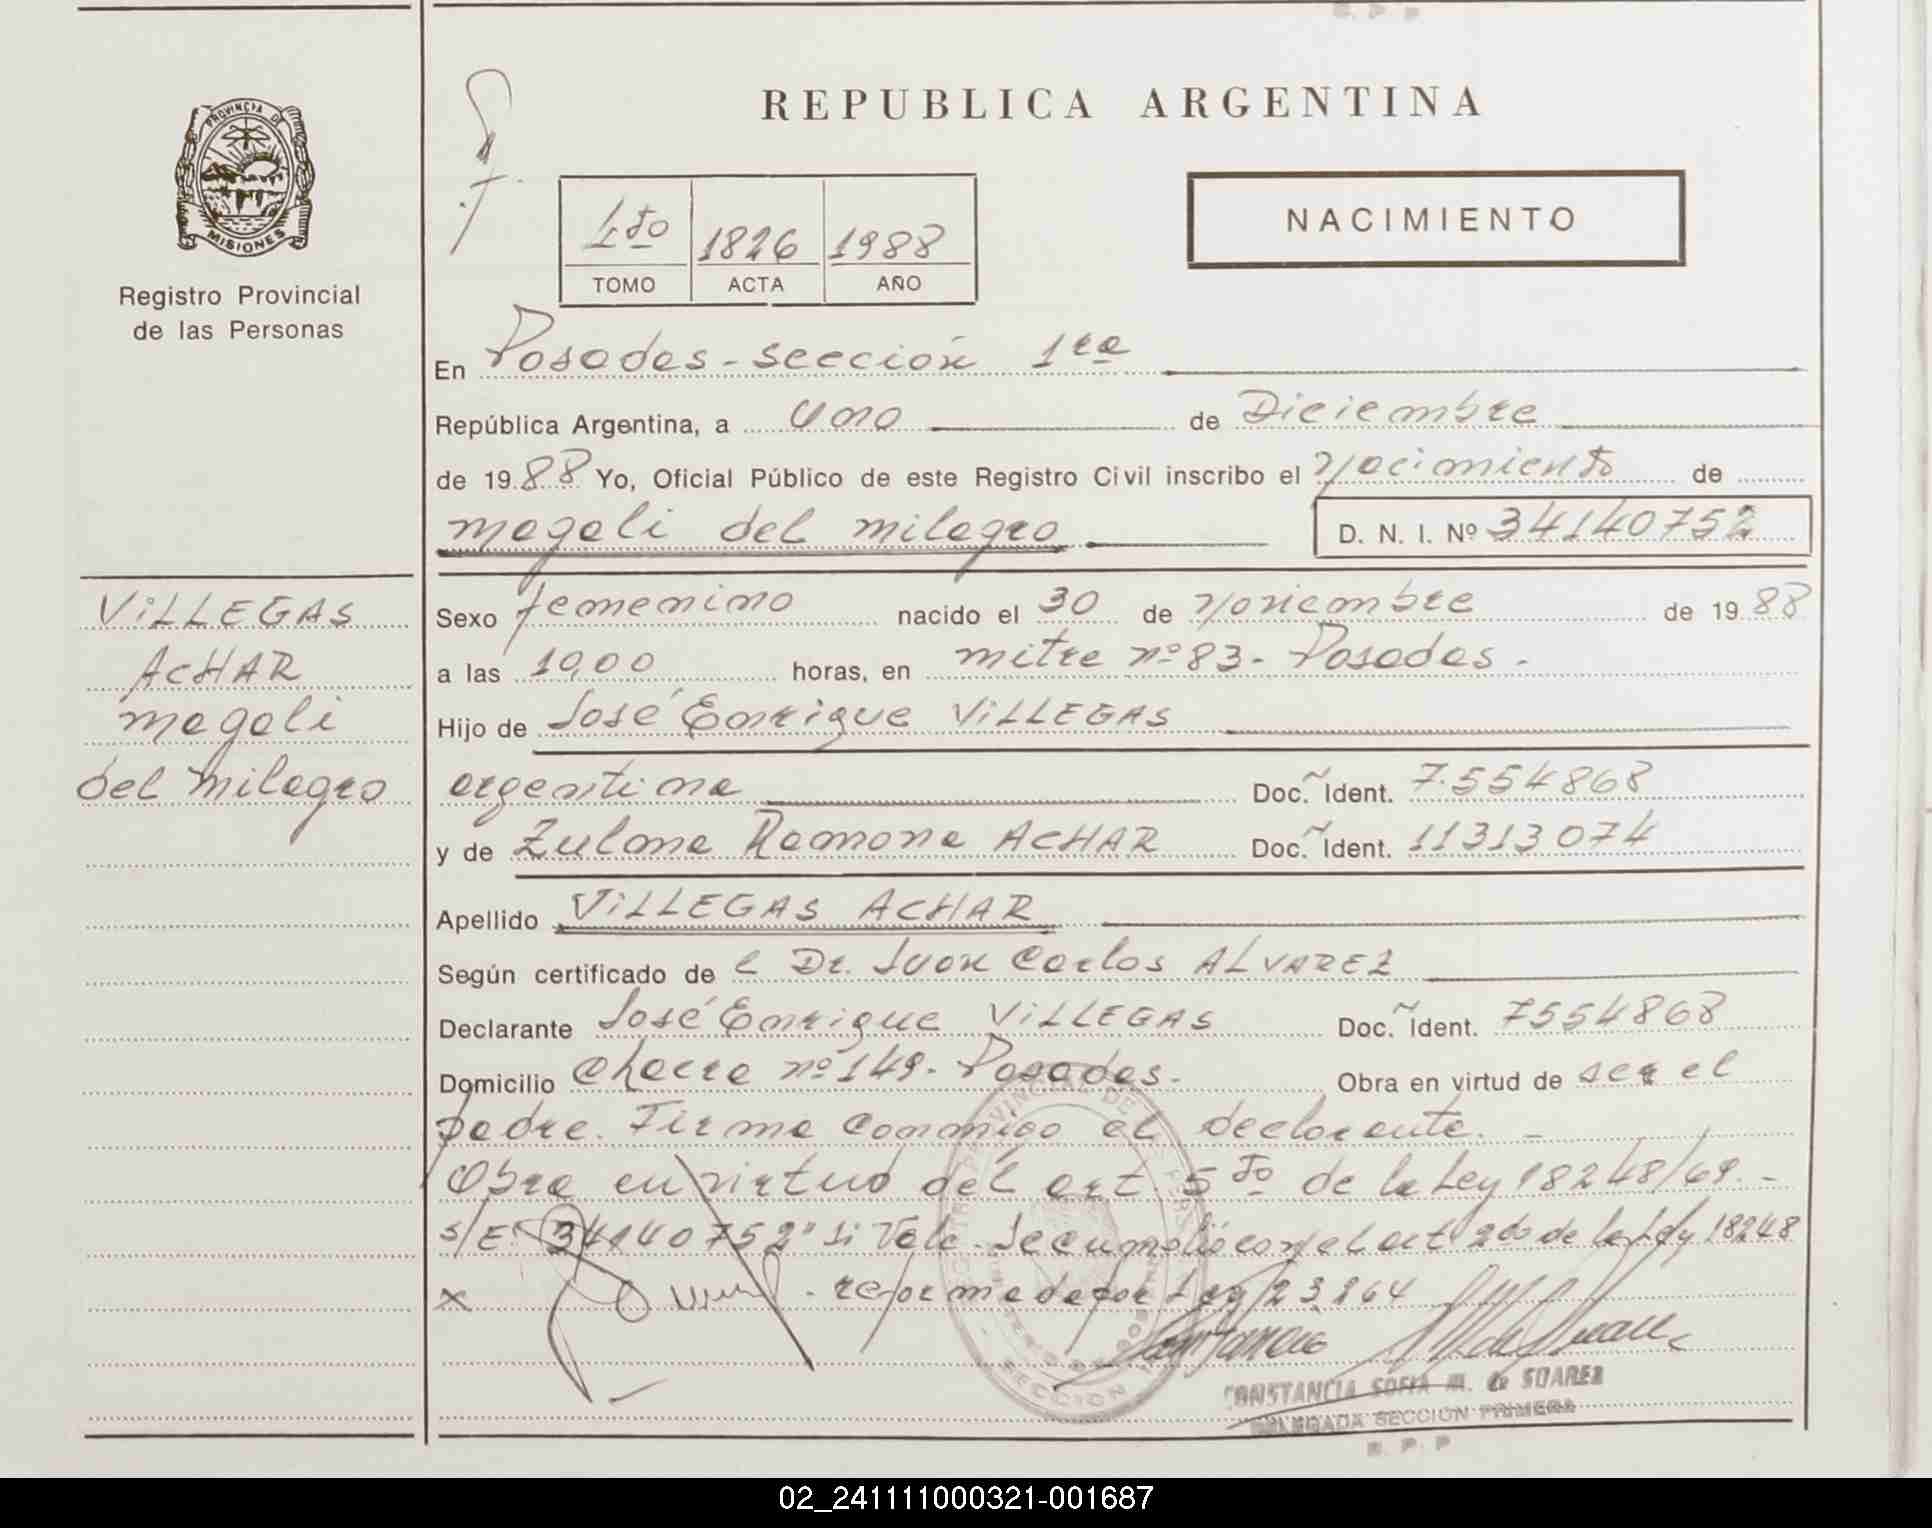 PROVINCIA DE
MISIONES
Registro Provincial
de las Personas
VILLEGAS
ACHAR
magali
del milagro
REPUBLICA ARGENTINA
4to 1826 1988
TOMO ACTA AÑO
NACIMIENTO
En Posadas - sección 1ra
República Argentina, a Uno de Diciembre
de 1988 Yo, Oficial Público de este Registro Civil inscribo el nacimiento de
magali del milagro D. N. I. Nº 34140752
Sexo femenino nacido el 30 de noviembre de 1988
a las 10,00 horas, en mitre nº 83 - Posadas.
Hijo de José Enrique VILLEGAS
argentina Doc. Ident. 7.554868
y de Zulma Ramona ACHAR Doc. Ident. 11313074
Apellido VILLEGAS ACHAR
Según certificado de l Dr. Juan Carlos ALVAREZ
Declarante José Enrique VILLEGAS Doc. Ident. 7554868
Domicilio Chacra nº 149. Posadas. Obra en virtud de ser el
padre. Firma conmigo el declarante. -
Obra en virtud del art 5to de la Ley 18248/69. -
S/E: 34140752" Si Vale. Se cumplió con el art 2do de la Ley 18248
x . reformada por Ley 23264
CONSTANCIA SOFIA M. de SUAREZ
DELEGADA SECCION PRIMERA
R. P. P
02_241111000321-001687